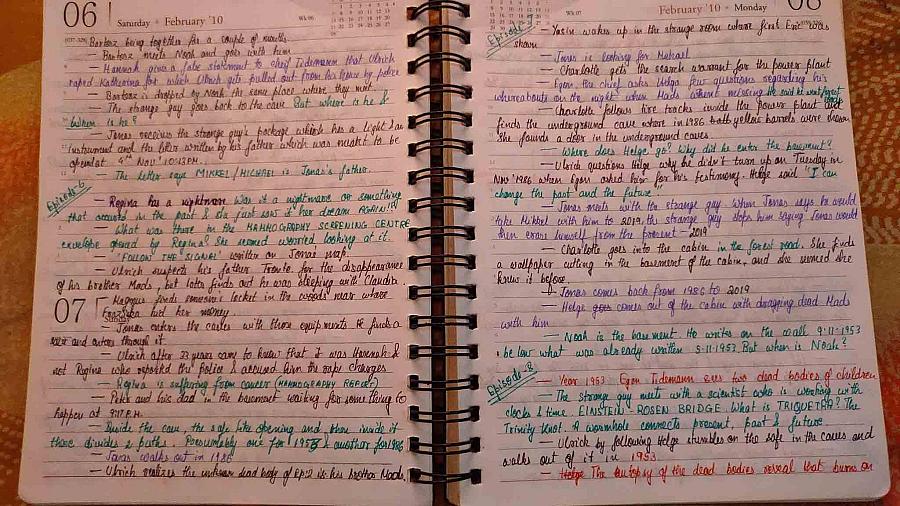 06 Saturday • February '10 Wk 06
(037-328) Bartosz being together for a couple of months.
— Bartosz meets Noah and goes with him
— Hannah gives a false statement to chief Tidemann that Ulrich
raped Katharina for which Ulrich gets pulled out from his house by police
— Bartosz is dropped by Noah the same place where they met.
— The strange guy goes back to the cave. But where is he &
when is he?
— Jonas receives the strange guy's package which has a light, an
instrument and the letter written by his father which was meant to be
opened at 4th Nov' 10:13PM.
— The letter says MIKKEL/MICHAEL is Jonas's father.
Episode-6
— Regina has a nightmare. Was it a nightmare or something
that occurred in the past & she just saw it her dream AGAIN!?
— What was there in the MAMMOGRAPHY SCREENING CENTRE
envelope opened by Regina? She seemed worried looking at it.
— "FOLLOW THE SIGNAL" written on Jonas' map.
— Ulrich suspects his father Tronte for the disappearance
of his brother Mads, but later finds out he was sleeping with Claudia.
— Magnus finds someone locked in the woods near where
Franziska hid her money
07 Sunday
— Jonas enters the caves with those equipments. He finds a
and enters through it.
— Ulrich after 33 years came to know that it was Hannah &
not Regina who reported the police & accused him the rape charges
— Regina is suffering from cancer (MAMMOGRAPHY REPORT)
— Peter and his dad in the basement waiting for something to
happen at 9:17 P.M.
— Inside the cave, the safe like opening and then inside it
there divides 2 paths. Presumably one for 1953 & another for 1986
— Jonas walks out in 1986
— Ulrich realizes the unknown dead body of Ep:2 is his brother Mads.
Wk 07 February '10 Monday 08
Episode-7
— Yasin wakes up in the strange room where first Eric was
shown
— Jonas is looking for Mikkel
— Charlotte gets the search warrant for the power plant
— Egon, the chief asks Helge few questions regarding his
whereabouts on the night when Mads went missing. He said he won't forget
— Charlotte follows tire tracks inside the power plant and
finds the underground cave where in 1986 both yellow barrels were shown.
She founds a door in the underground caves.
— Where does Helge go? Why did he enter the basement?
— Ulrich questions Helge why he didn't turn up on Tuesday in
Nov' 1986 when Egon asked him for his testimony. Helge said "I can
change the past and the future."
— Jonas meets with the strange guy. When Jonas says he would
take Mikkel with him to 2019, the strange guy stops him saying Jonas would
then erase himself from the present - 2019
— Charlotte goes into the cabin in the forest road. She finds
a wallpaper cutting in the basement of the cabin, and she seemed she
knew it before.
— Jonas comes back from 1986 to 2019
— Helge goes comes out of the cabin with dragging dead Mads
with him
— Noah is the basement. He writes on the wall 9-11-1953
below what was already written 5-11-1953. But when is Noah?
Episode-8
— Year 1953. Egon Tidemann sees two dead bodies of children
— The strange guy meets with a scientist who is working with
clocks & time. EINSTEIN-ROSEN BRIDGE. What is TRIQUETRA? The
Trinity Knot. A wormhole connects present, past & future
— Ulrich by following Helge stumbles on the safe in the caves and
walks out of it in 1953
— Helge The autopsy of the dead bodies reveal that burns on